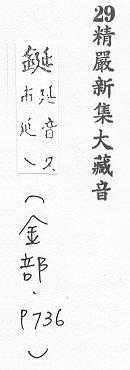 29精嚴新集大藏音
鋋延音又
市延乀
(金部.P736)